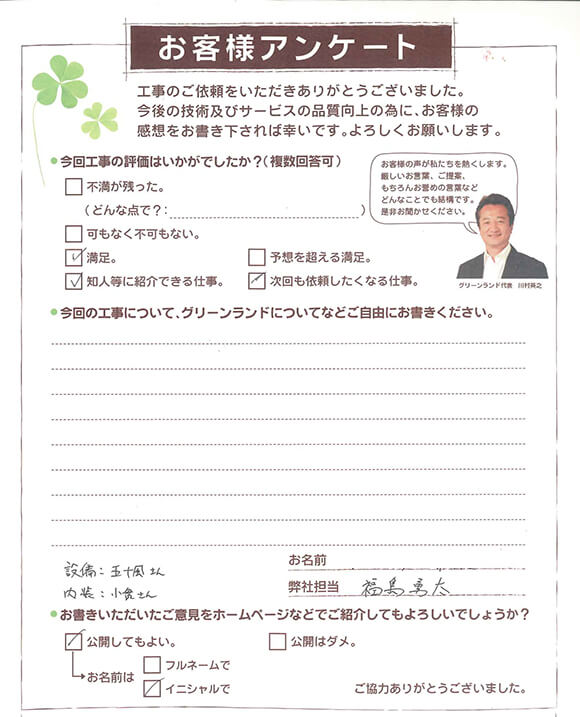 お客様アンケート
工事のご依頼をいただきありがとうございました。
今後の技術及びサービスの品質向上の為に、お客様の
感想をお書き下されば幸いです。よろしくお願いします。
●今回工事の評価はいかがでしたか？（複数回答可）
不満が残った。
（どんな点で？：　）
可もなく不可もない。
満足。
予想を超える満足。
知人等に紹介できる仕事。
次回も依頼したくなる仕事。
お客様の声が私たちを熱くします。
厳しいお言葉、ご提案、
もちろんお誉めの言葉など
どんなことでも結構です。
是非お聞かせください。
グリーンランド代表　川村英之
●今回の工事について、グリーンランドについてなどご自由にお書きください。
お名前
設備：五十嵐さん
弊社担当　福島勇太
内装：小倉さん
●お書きいただいたご意見をホームページなどでご紹介してもよろしいでしょうか？
公開してもよい。
公開はダメ。
お名前は
フルネームで
イニシャルで
ご協力ありがとうございました。